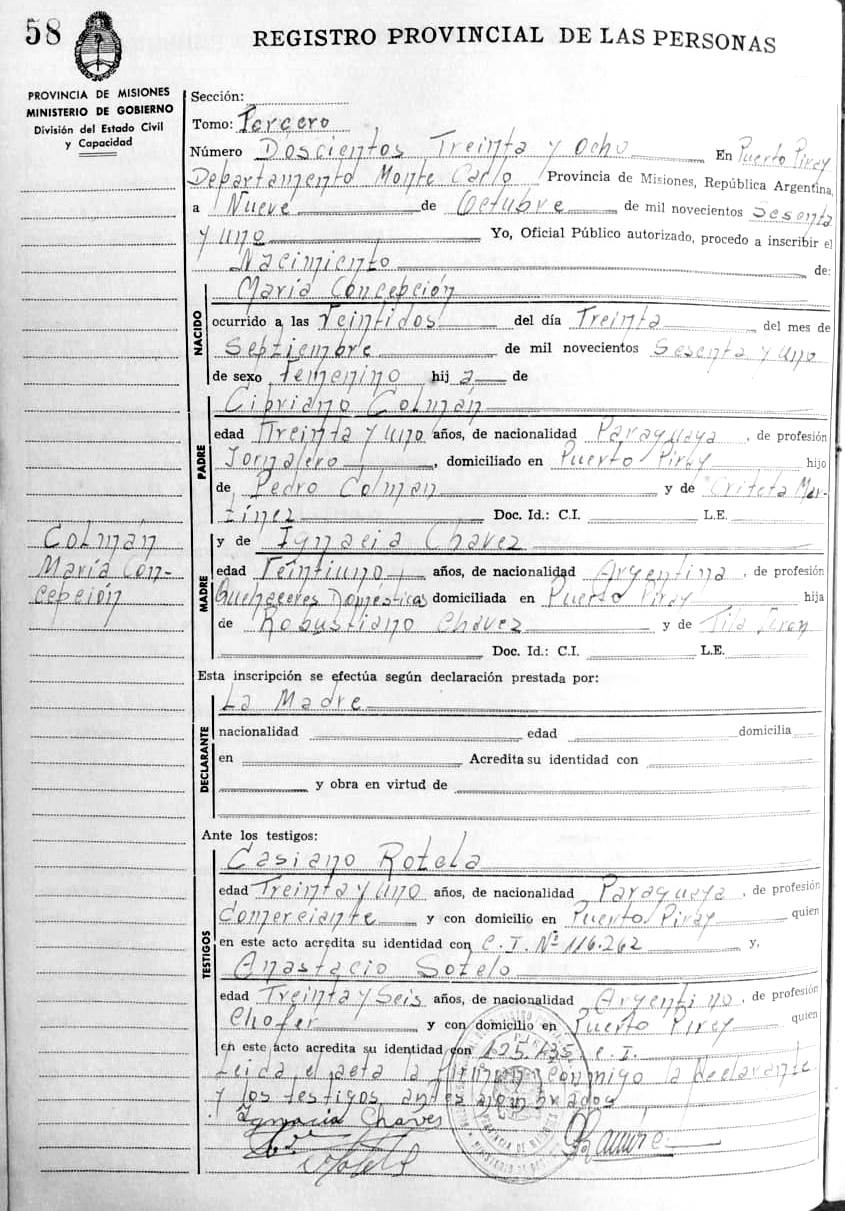 58
REGISTRO PROVINCIAL DE LAS PERSONAS
PROVINCIA DE MISIONES
MINISTERIO DE GOBIERNO
División del Estado Civil
y Capacidad
Sección:
Tomo: Tercero
Número Doscientos Treinta y Ocho En Puerto Piray
Departamento Monte Carlo Provincia de Misiones, República Argentina,
a Nueve de Octubre de mil novecientos Sesenta
y uno Yo, Oficial Público autorizado, procedo a inscribir el
Nacimiento de:
NACIDO
María Concepción
ocurrido a las Veintidos del día Treinta del mes de
Septiembre de mil novecientos Sesenta y uno
de sexo femenino hija de
PADRE
Cipriano Colmán
edad Treinta y uno años, de nacionalidad Paraguaya, de profesión
Jornalero, domiciliado en Puerto Piray hijo
de Pedro Colman y de Mar-
tínez Doc. Id.: C.I. L.E.
Colmán
María Con-
cepción
MADRE
y de Ignacia Chavez
edad Veintiuno años, de nacionalidad Argentina, de profesión
Quehaceres Domésticas domiciliada en Puerto Piray hija
de Robustiano Chavez y de
Doc. Id.: C.I. L.E.
Esta inscripción se efectúa según declaración prestada por:
DECLARANTE
La Madre
nacionalidad edad domicilia
en Acredita su identidad con
y obra en virtud de
Ante los testigos:
TESTIGOS
Casiano Rotela
edad Treinta y uno años, de nacionalidad Paraguaya, de profesión
Comerciante y con domicilio en Puerto Piray quien
en este acto acredita su identidad con C.I. Nº 116.262 y,
Anastacio Sotelo
edad Treinta y Seis años, de nacionalidad Argentino, de profesión
Chofer y con domicilio en Puerto Piray quien
en este acto acredita su identidad con 425.435 C.I.
Leida el acta la firman conmigo la declarante
y los testigos antes nombrados
Ignacia Chaves